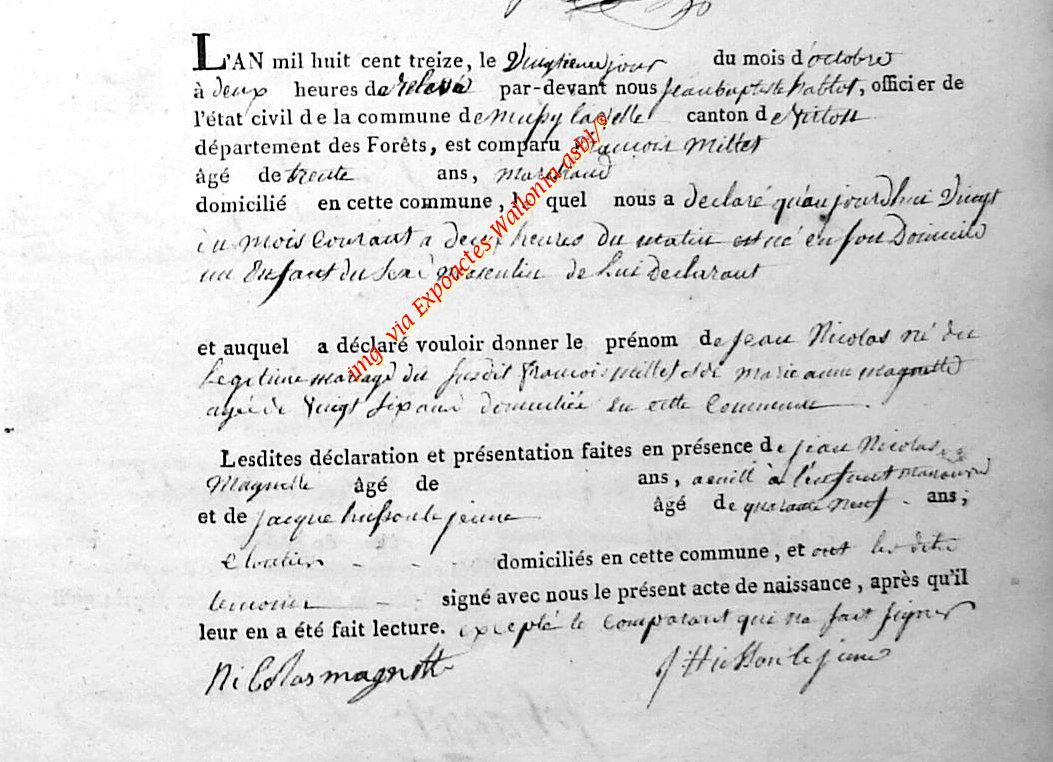 L'AN mil huit cent treize, le Vingtieme jour du mois d'octobre
à deux heures de relevé par-devant nous Jean baptiste hablot, officier de
l'état civil de la commune de Mussy la ville canton de Virton
département des Forêts, est comparu François Millet
âgé de trente ans, Marchand
domicilié en cette commune, le quel nous a declaré qu'aujourdhui Vingt
du mois Courant a deux heures du matin est né en son Domicile
un Enfant du Sexe Masculin de Lui Declarant
et auquel a déclaré vouloir donner le prénom de Jean Nicolas né du
Legitime mariage du susdit François Millet et de Marie anne magnette
agée de Vingt six ans domiciliée en cette Commune
Lesdites déclaration et présentation faites en présence de Jean Nicolas
Magnette âgé de ans, à l'enfant
et de jacque husson le jeune âgé de quarante neuf ans,
Cloutier domiciliés en cette commune, et ont les dits
temoins signé avec nous le présent acte de naissance, après qu'il
leur en a été fait lecture. excepté le Comparant qui ne sait signer
Nicolas magnette J Husson le jeune
img via Expoactes-Wallonia-asbl/©